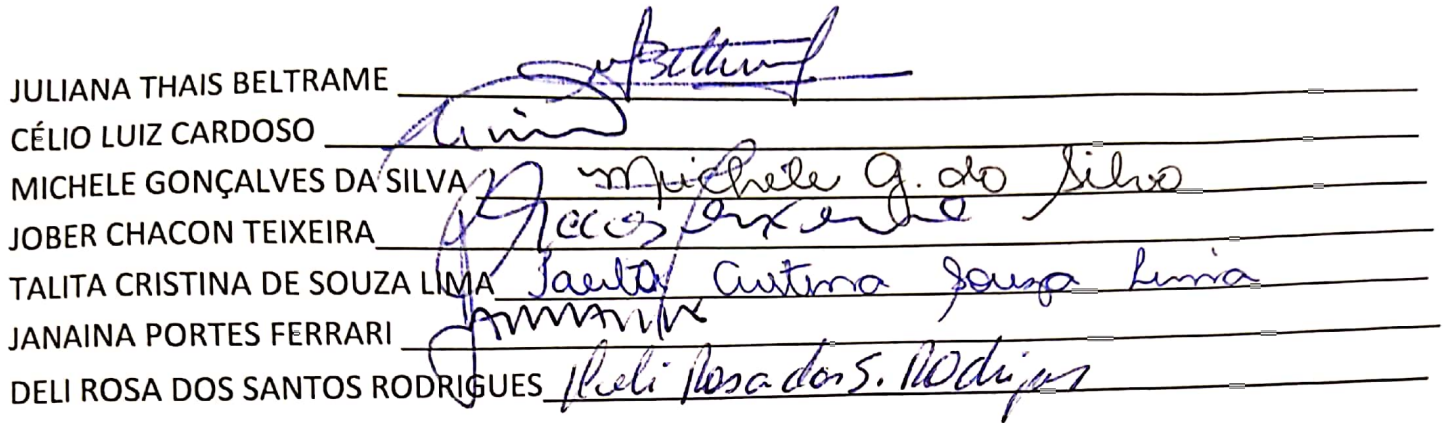 JULIANA THAIS BELTRAME
CÉLIO LUIZ CARDOSO
MICHELE GONÇALVES DA SILVA Michele G. da Silva
JOBER CHACON TEIXEIRA
TALITA CRISTINA DE SOUZA LIMA Talita Cristina Souza Lima
JANAINA PORTES FERRARI
DELI ROSA DOS SANTOS RODRIGUES Deli Rosa dos S. Rodrigues